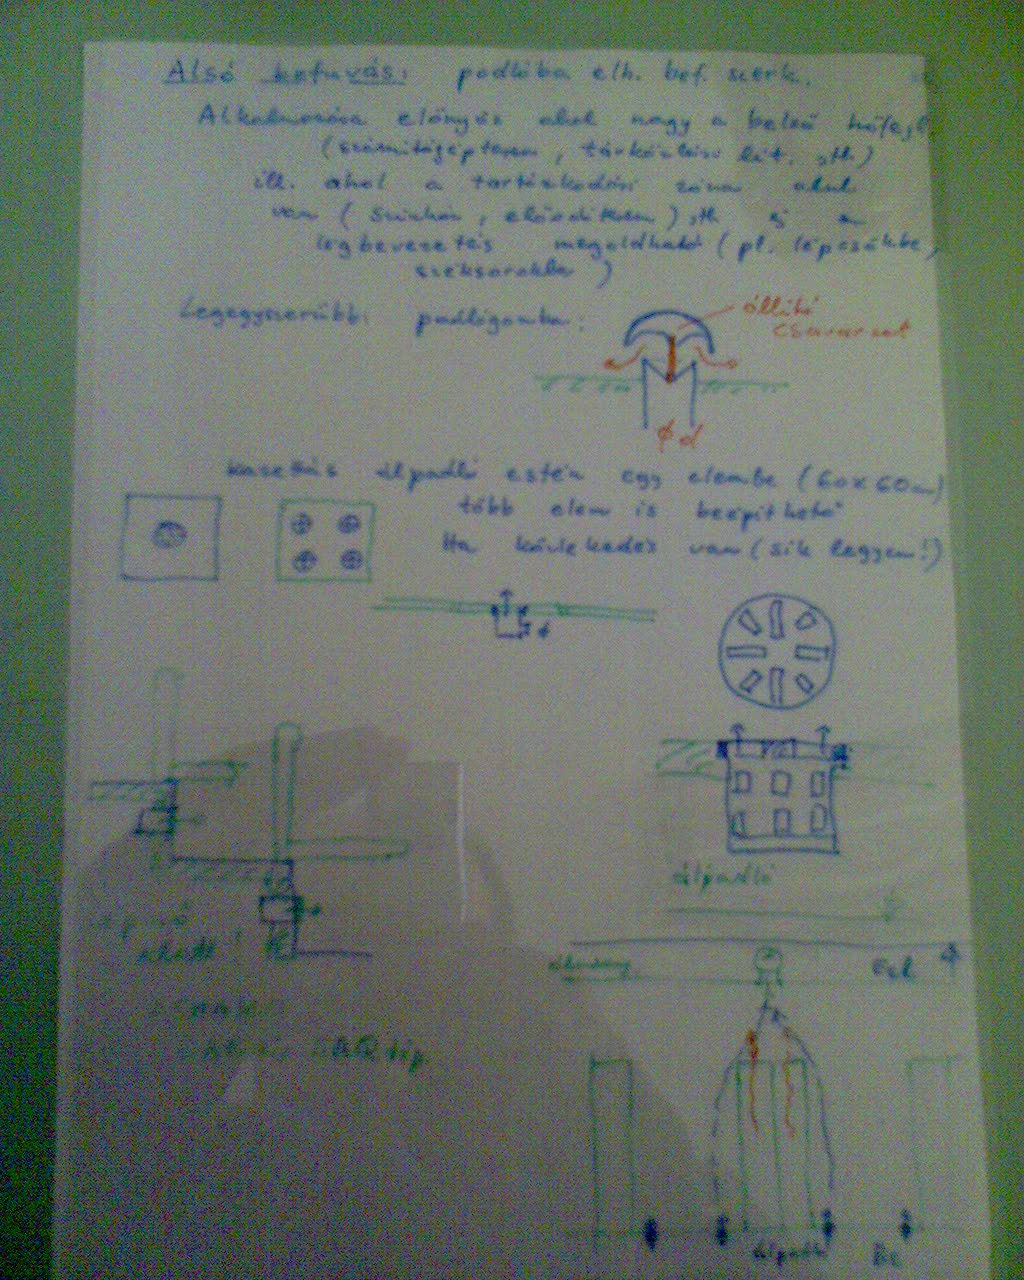 Alsó befúvás: podlóba elh. bef. szerk.
Alkalmazása előnyös ahol nagy a belső hőfejl.
(számítógépterem, távközlési lét. stb.)
ill. ahol a tartózkodási zóna alul
van (színház, előadóterem) stb és a
légbevezetés megoldható (pl. lépcsőkbe,
széksorokba)
Legegyszerűbb: padlógomba:
állító
csavarzat
ϕ d
kazettás álpadló estén egy elembe (60x60cm)
több elem is beépíthető
Ha közlekedés van (sík legyen!)
álpadló
alatt!
Elsz
álpadló
Be